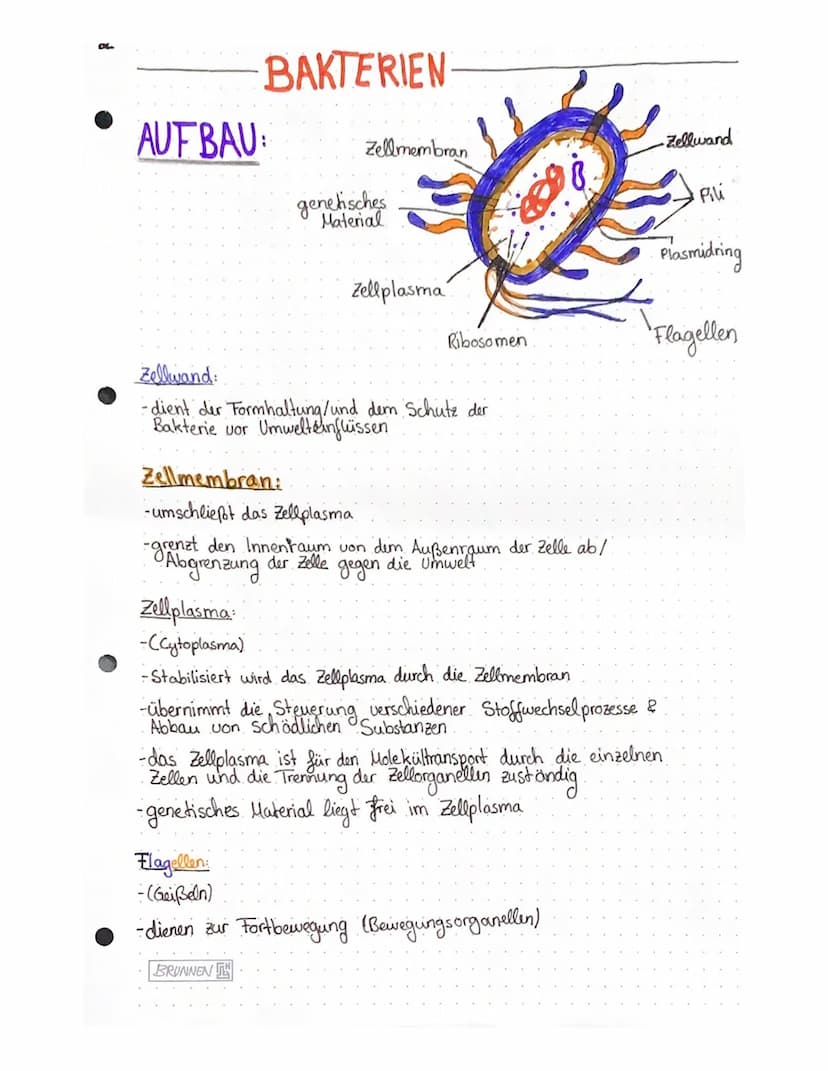 BAKTERIEN
AUFBAU:
Zellmembran
Zellwand
genetisches
Material
Pili
Plasmidring
Zellplasma
Ribosomen
Flagellen
Zellwand:
-dient der Formhaltung/und dem Schutz der
Bakterie vor Umwelteinflüssen
Zellmembran:
-umschließt das Zellplasma
-grenzt den Innenraum von dem Außenraum der Zelle ab/
Abgrenzung der Zelle gegen die Umwelt
Zellplasma:
-(Cytoplasma)
-Stabilisiert wird das Zellplasma durch die Zellmembran
-übernimmt die Steuerung verschiedener Stoffwechselprozesse &
Abbau von Schädlichen Substanzen
-das Zellplasma ist für den Molekültransport durch die einzelnen
Zellen und die Trennung der Zellorganellen zuständig
-genetisches Material liegt frei im Zellplasma
Flagellen:
-(Geißeln)
-dienen zur Fortbewegung (Bewegungsorganellen)
BRUNNEN